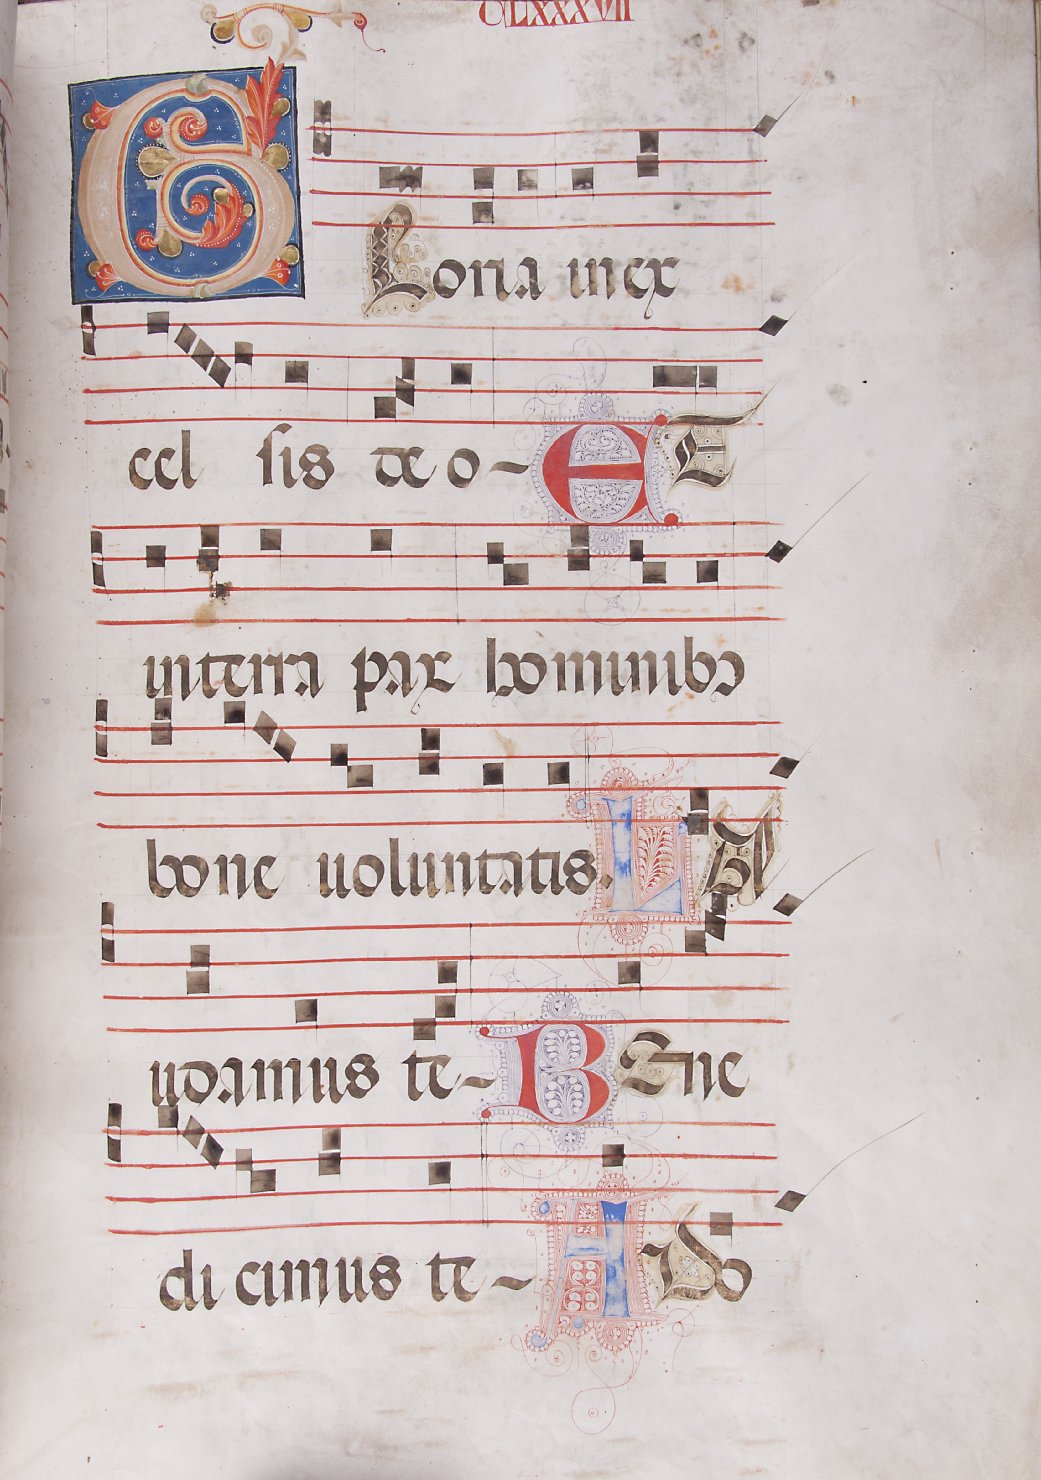 CLXXXVII
GLoria in ex
cel sis deo Et
in terra pax hominibꝰ
bone uoluntatis. LAu
udamus te BEne
di cimus te ADo